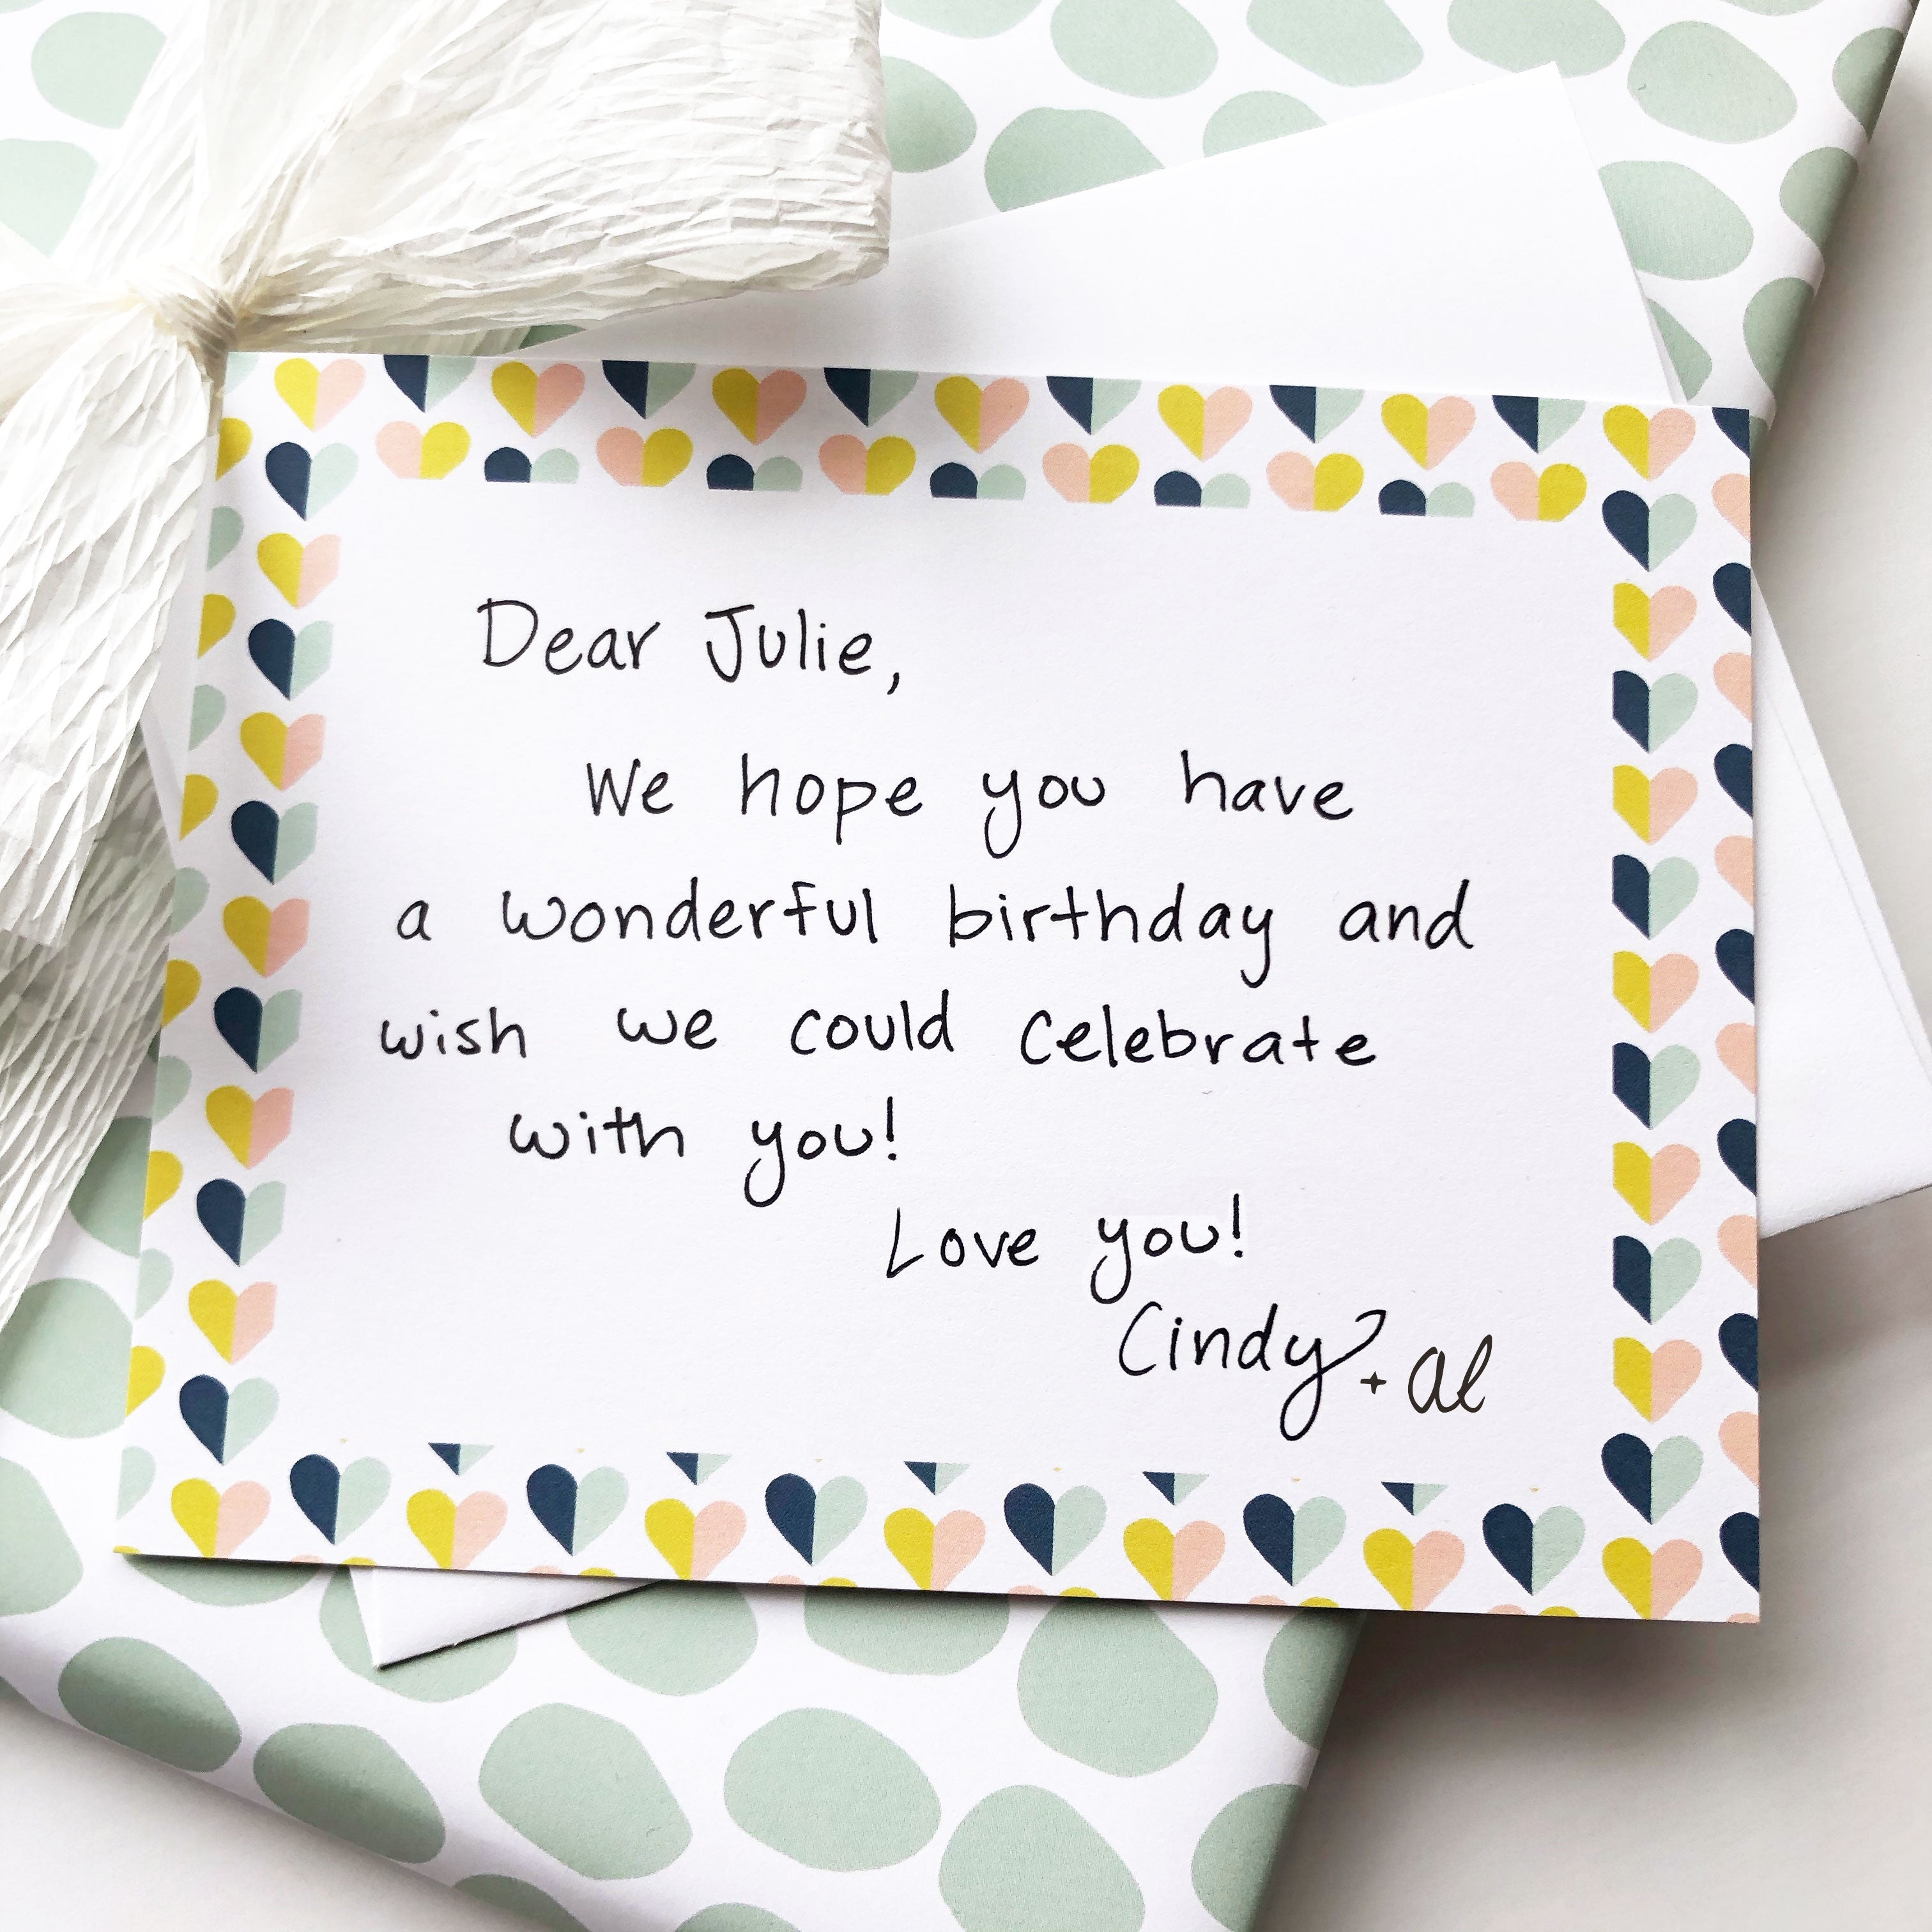 Dear Julie,
We hope you have
a wonderful birthday and
wish we could celebrate
with you!
Love you!
Cindy + Al